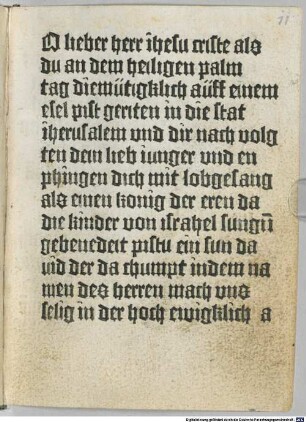 11
O lieber herr ihesu criste als
du an dem heiligen palm
tag diemütigklich aüff einem
esel pist geriten in die stat
iherusalem vnd dir nach volg
ten dein lieb iunger vnd en
phingen dich mit lobgesang
als einen konig der eren da
die kinder von israhel sungn̄
gebenedeit pistu ein sun da
uid der da chumpt indem na
men des herren mach vns
selig in der hoch ewigklich a